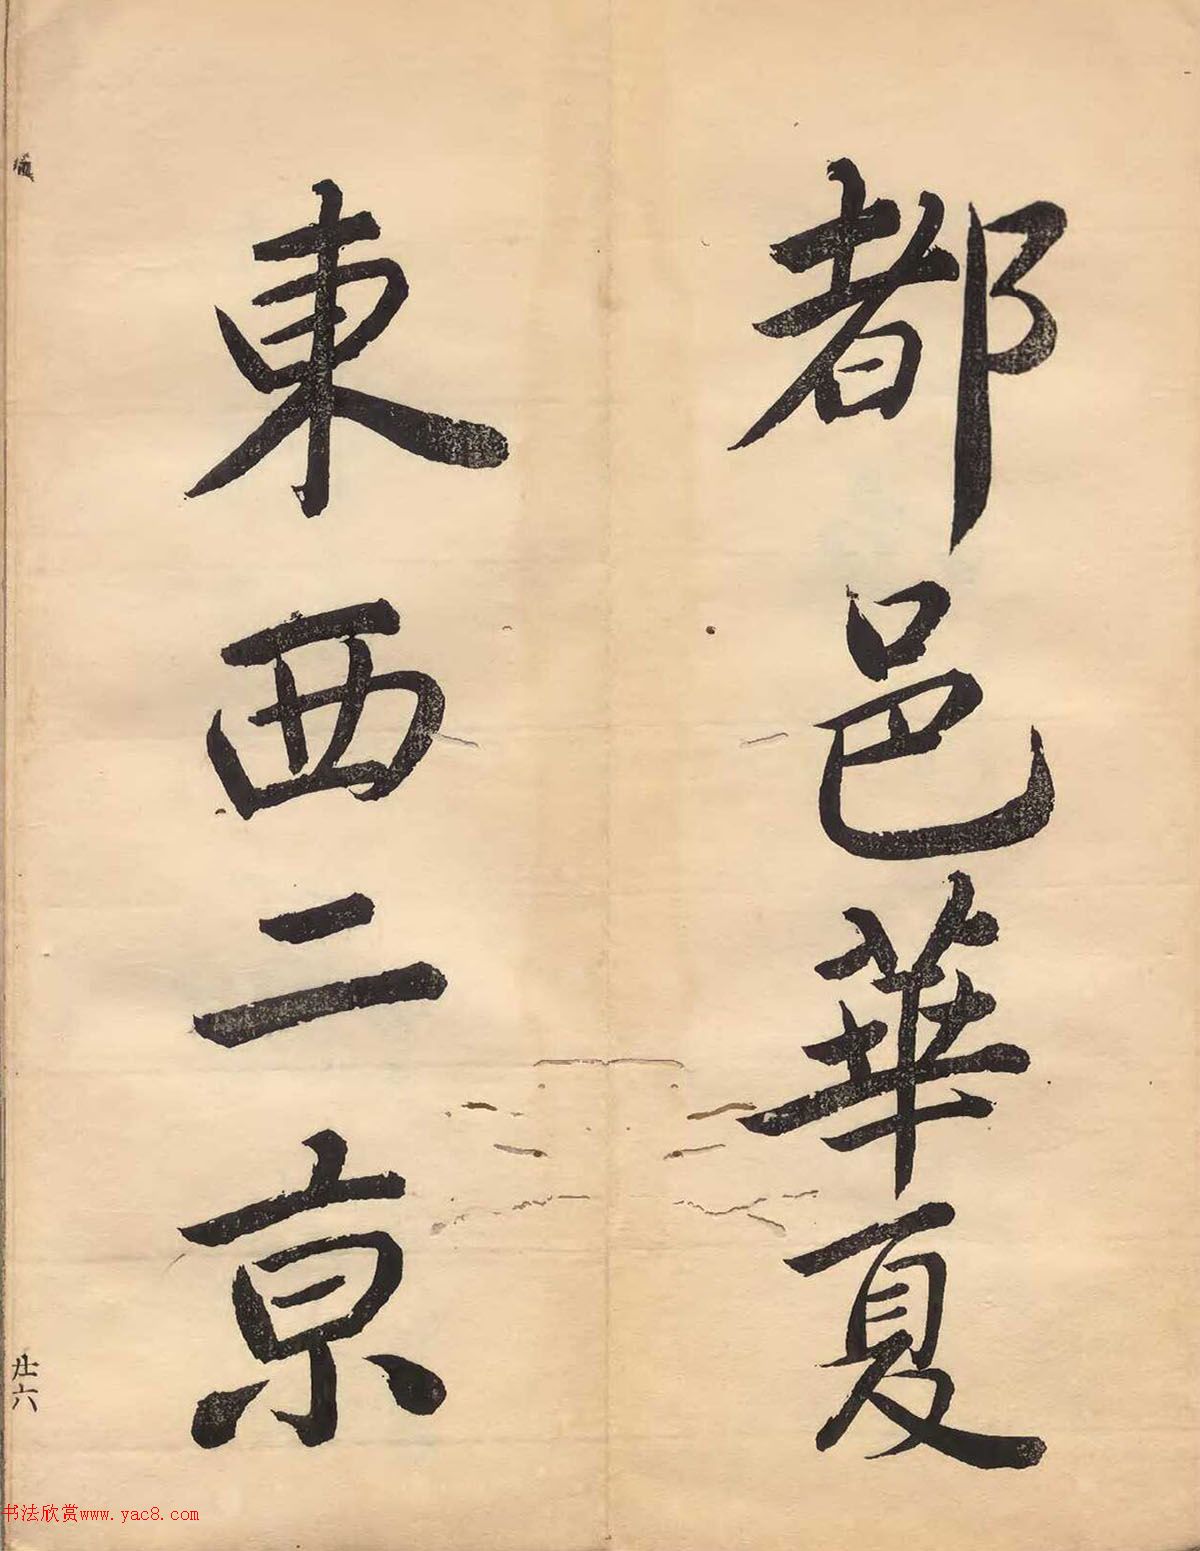 都邑華夏
東西二京
廿六
书法欣赏www.yac8.com